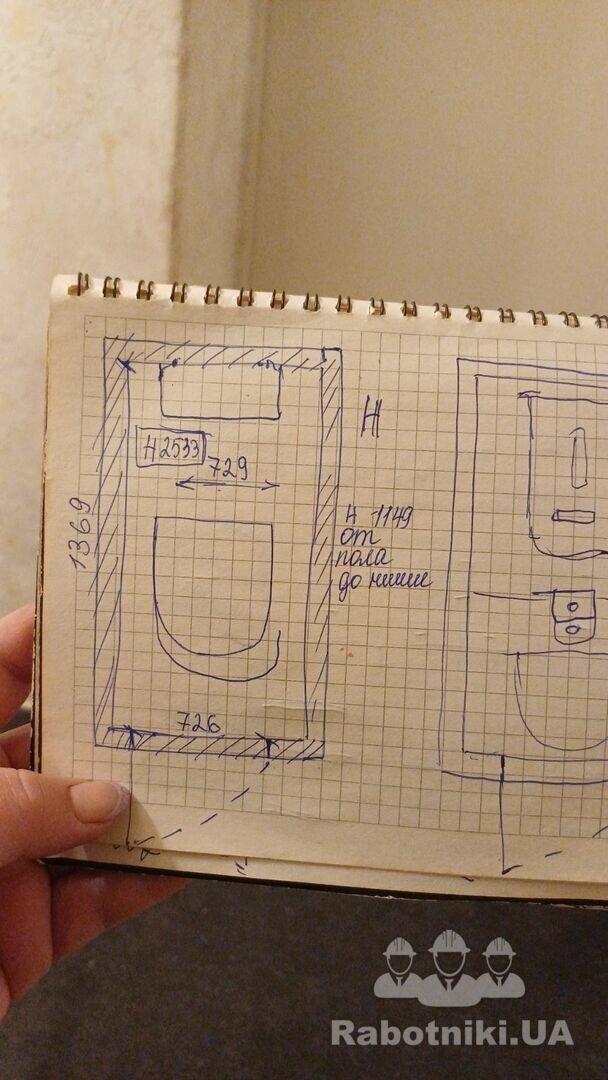 H
H 2533
729
1369
H 1149
от
пола
до ниши
726
Rabotniki.UA